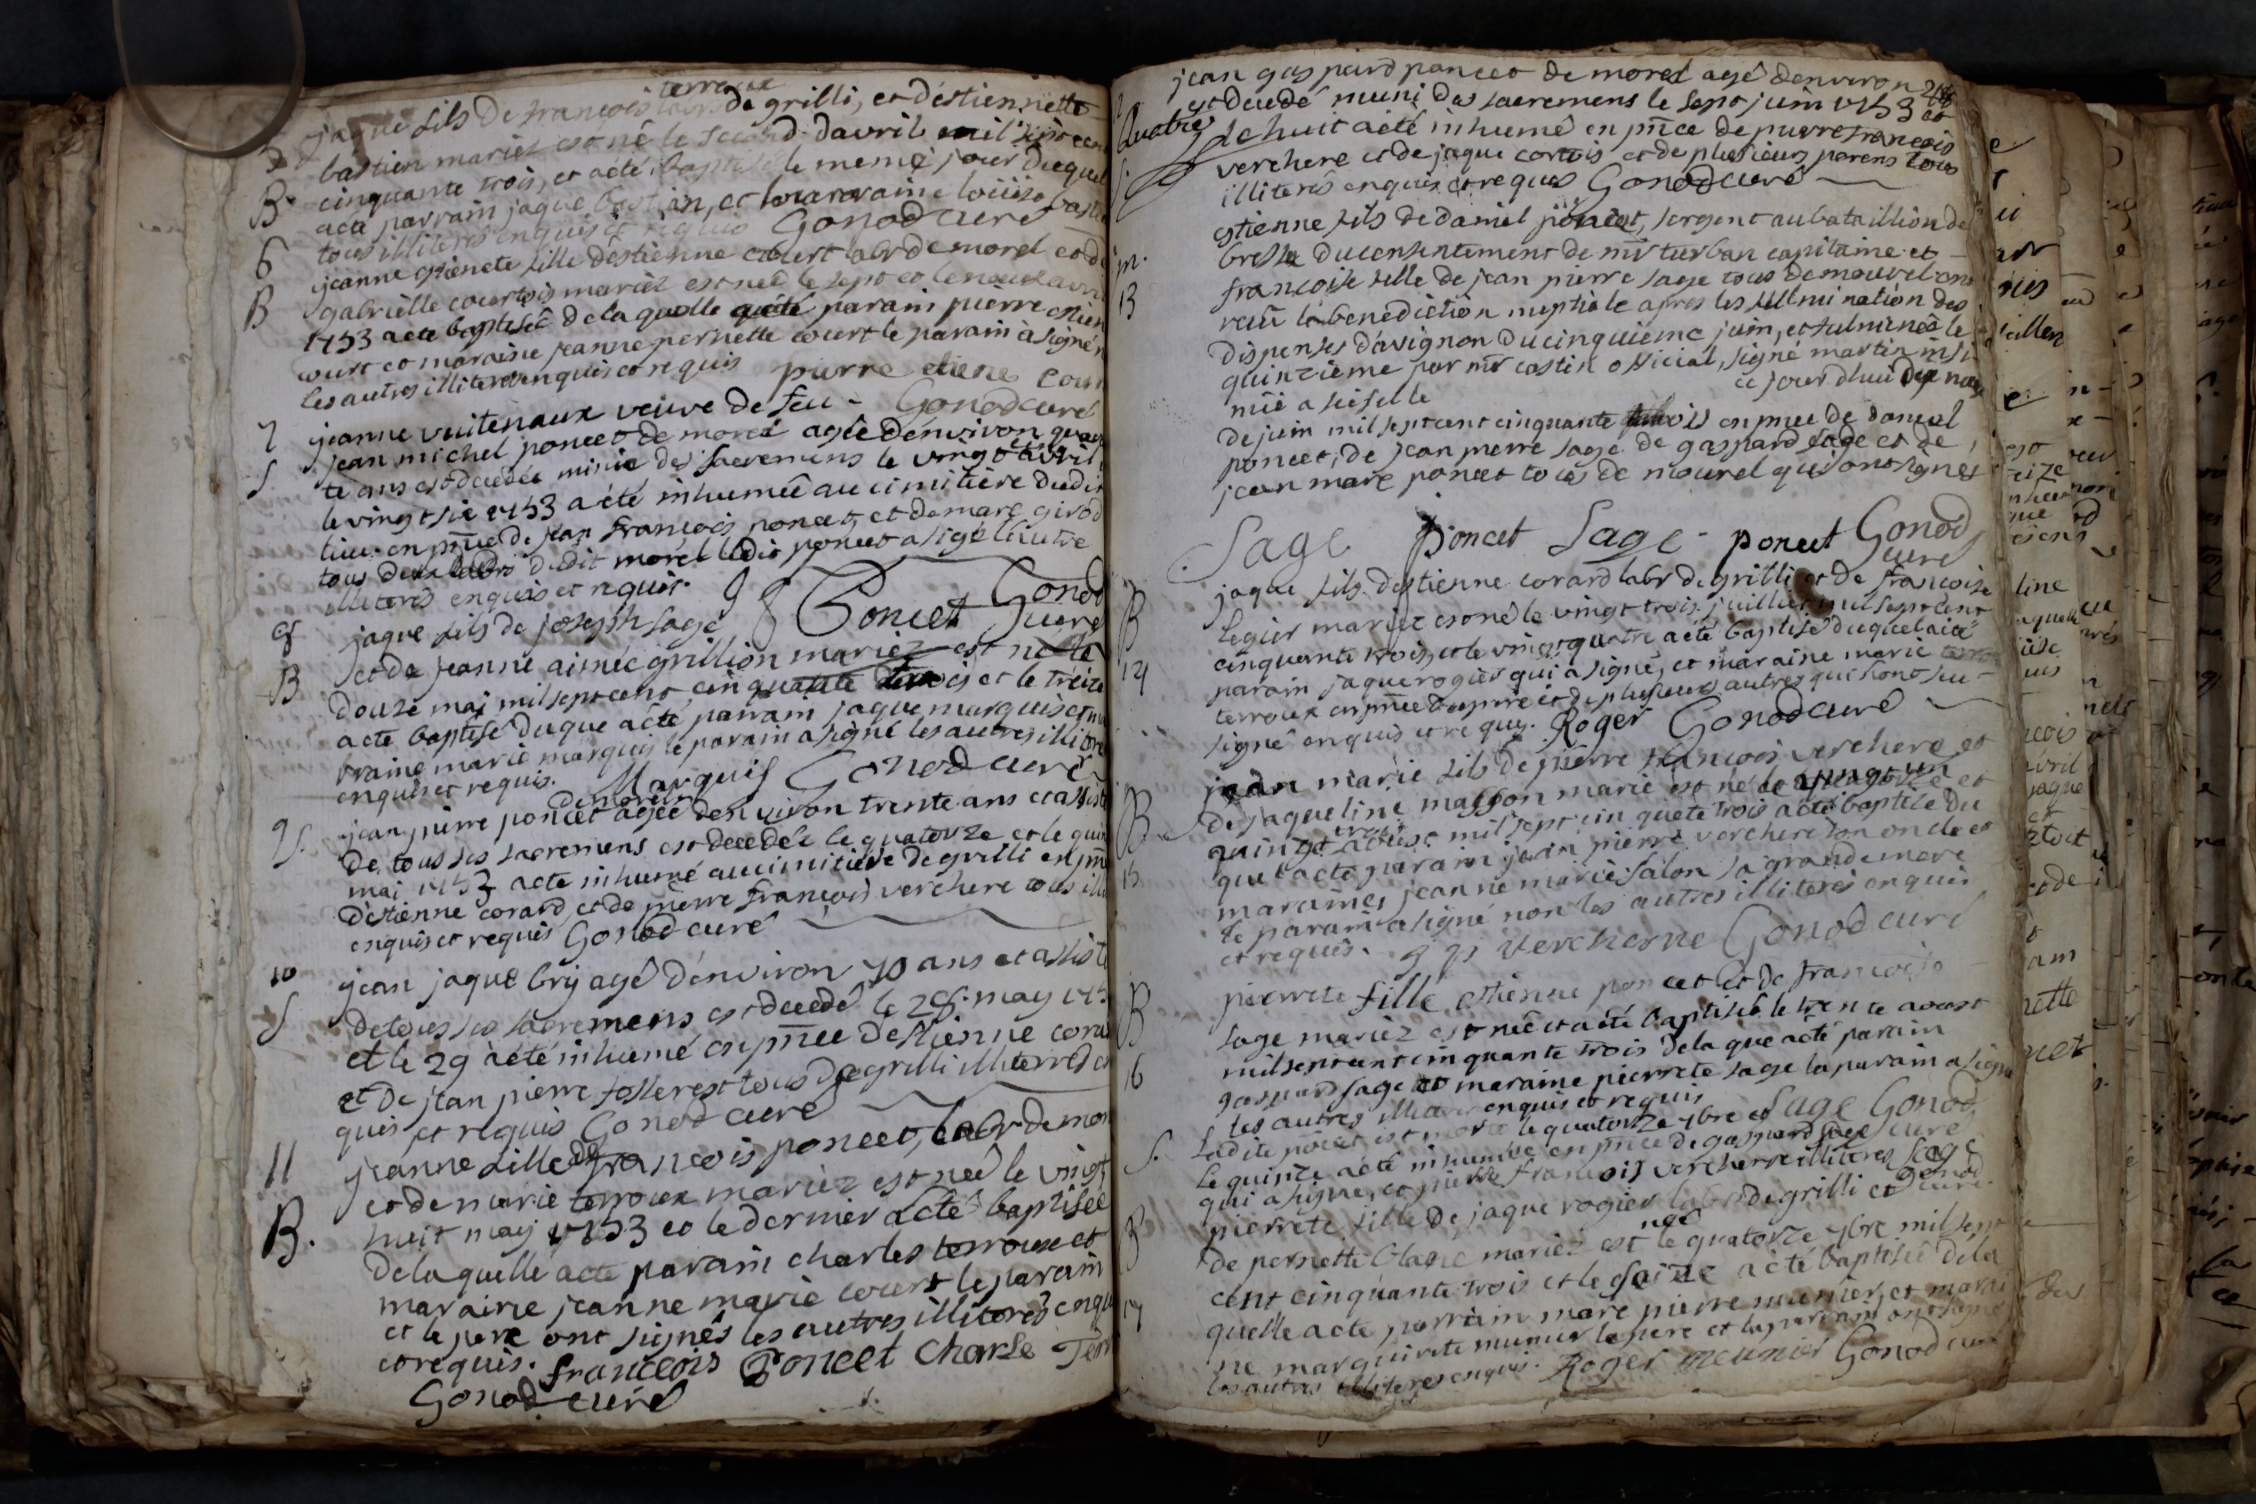 terroux
jaque fils de francois labr de grilli, et d'estiennette
5 bastien mariez est né le second d'avril mil sept cent
B. cinquante trois, et a été baptisé le meme jour duquel
a eté parrain jaque bastian, et la maraine loüise bastie
tous illiteres enquis et requis Gonod curé
6 jeanne estienete fille d'estienne court labr de morel et de
gabrielle courtois mariez est née le sept et le neuf avri
B 1753 a ete baptisée de la quelle a été parain pierre estien
court et maraine jeanne pernette court le parain a signé
les autres illiteres enquis et requis pierre etiene cour
Gonod curé
7 jeanne vuitenaux veuve de feu
jean michel poncet de morel agée d'environ quara
S te ans est decedée munie des sacremens le vingt avril
le vingt six 1753 a été inhumée au cimitière dudit
lieu en pnce de jean francois poncet, et de marc girod
tous deux labrs dudit morel ledit poncet a signé l'autre
illiteres enquis et requis. J f Poncet Gonod
curé
8 jaque fils de joseph sage
et de jeanne aimée grillion mariez est né le
B douze mai mil sept cent cinquante trois et le treize
a eté baptisé duque a été parrain jaque marquis et ma
raine marie marquis le parain a signé les autres illitere
enquis et requis. Marquis Gonod curé
de morel
9 jean pierre poncet agée d'environ trente ans et assisté
S. de tous ses sacremens est decedée le quatorze et le quin
mai 1753 a ete inhumé au cimitière de grilli en pnce
d'estienne corard et de pierre francois verchere tous illi
enquis et requis Gonod curé
10 jean jaque bry agé d'environ 70 ans et assisté
S de tous ses sacremens est decedé le 28 may 175
et le 29 a été inhumé en pnce d'estienne cora
et de jean pierre fosserest tous de grilli illiteres en
quis et requis Gonod curé
11 jeanne fille de francois poncet, labr de mor
et de marie terroux mariez est née le vingt
B. huit may 1753 et le dernier a eté baptisée
de la quelle a eté parain charles terroux et
maraine jeanne marie court le parain
et le pere ont signés les autres illiteres enqu
et requis. francois Poncet charle Terr
Gonod curé
jean gaspard poncet de morel agé d'environ 28
est decedé muni des sacremens le sept juin 1753 et
Quatre le huit a été inhumé en pnce de pierre francois
S. verchere et de jaque cortois et de plusieurs parens tous
illiterés enquis et requis Gonod curé
estienne fils de daniel poncet, sergent au bataillion de
m. bresse du consentement de mr turban capitaine et
13 francoise fille de jean pierre sage tous de mourel ont
recû la benediction nuptiale apres les fulmination des
dispenses d'avignon du cinquieme juin, et fulminés le
quinzieme par mr castin official, signé martin insi
nué a seiselle ce jourdhui dix neuf
de juin mil sept cent cinquante trois en pnce de daniel
poncet, de jean pierre sage de gaspard sage et de
jean marc poncet tous de mourel qui ont signés
Sage Poncet Sage poncet Gonod
curé
B jaque fils d'estienne corard labr de grilli et de francoise
legier mariez est né le vingt trois juillet mil sept cent
cinquante trois, et le vingt quatre a eté baptisé duquel a eté
14 parain jaque rogier qui a signé, et maraine marie
terroux en pnce du pere et de plusieurs autres qui sont sus
signé enquis et requis. Roger Gonod curé
jean marie fils de pierre francois verchere et
B de jaqueline masson marié est né le vingt un et
vingt trois aoust mil sept cin quete trois a eté baptisé du
15 quel a eté parain jean pierre verchere son oncle et
maraines jeanne marie falon sa grande mere
le parain a signé non les autres illiteres enquis
et requis. j p verchere Gonod curé
B pierrete fille estienne poncet et de francoise
sage mariez est née et a été baptisée le trente aoust
mil sept cent cinquante trois de la que a eté parain
16 gaspard sage et maraine pierrete sage la parain a signé
les autres illiteres enquis et requis Sage Gonod
curé
S. ladite poncet est morte le quatorze 7bre et
le quinze a été inhumée en pnce de gaspard sage
qui a signé, et pierre francois verchere illiteres Sage
Gonod curé
B pierrete fille de jaque rogier labr de grilli et
de pernette blanc mariez est née le quatorze 7bre mil sept
cent cinquante trois et le seize a été baptisée de la
17 quelle a eté parrain marc pierre munier, et marai
ne marguirite munier le pere et la parain ont signé
les autres illiteres enquis. Roger meunier Gonod curé